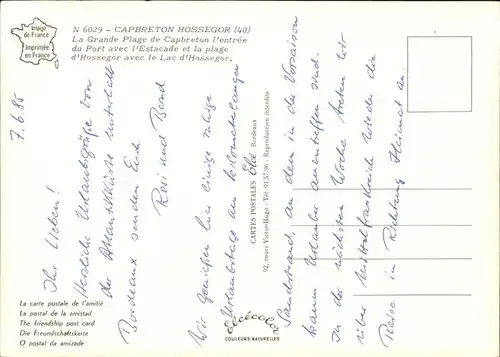 Image
de France
Imprimée
en France
N 6029 - CAPBRETON HOSSEGOR (40)
La Grande Plage de Capbreton l'entrée
du Port avec l'Estacade et la plage
d'Hossegor avec le Lac d'Hossegor.
7.6.85
Ihr Lieben!
Herzliche Urlaubsgrüße von
der Atlantikküste unterhalb
Bordeaux senden Euch
Rosi und Bernd
Wir genießen hier einige ruhige
Urlaubstage am kilometerlangen
Sandstrand, an dem in der Vorsaison
kaum Urlauber anzutreffen sind.
In der nächsten Woche treten wir
über Mittelfrankreich wieder die
Reise in Richtung Heimat an.
CARTES POSTALES Elcé Bordeaux
92, cours Victor-Hugo - Tél. 91.57.96 - Reproduction interdite
Elcécolor
COULEURS NATURELLES
La carte postale de l'amitié
La postal de la amistad
The friendship post card
Die Freundschaftskarte
O postal da amizade